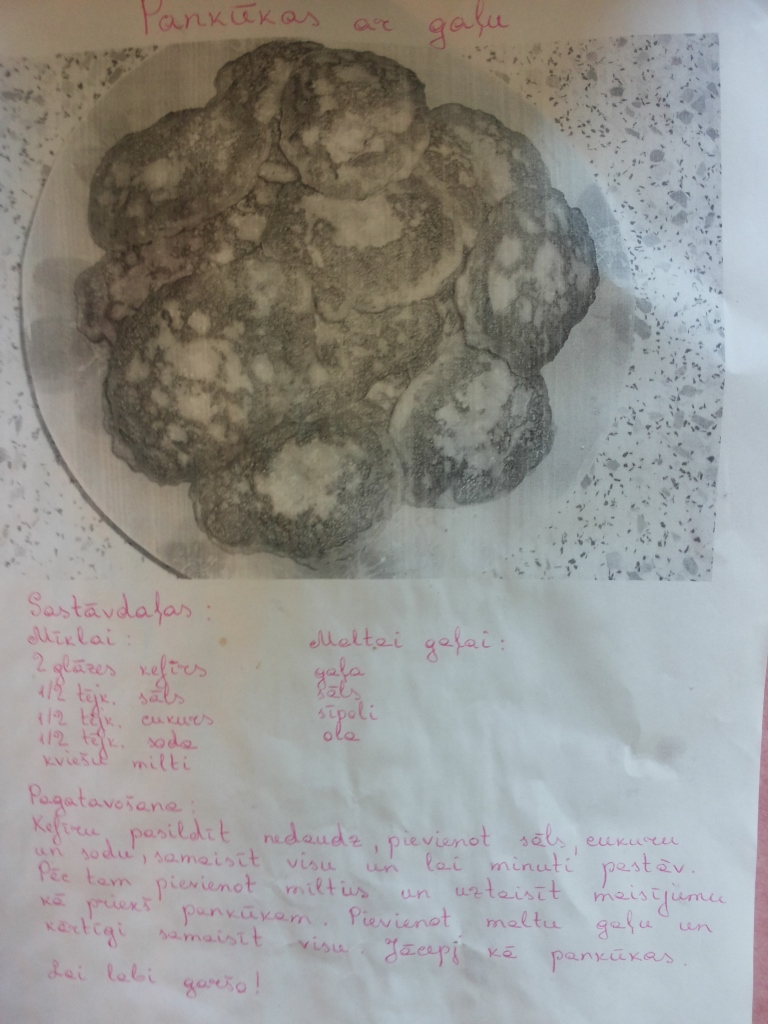 Pankūkas ar gaļu
Sastāvdaļas:
Mīklai:
2 glāzes kefīrs
1/2 tējk. sāls
1/2 tējk. cukurs
1/2 tējk. soda
kviešu milti
Maltai gaļai:
gaļa
sāls
sīpoli
ola
Pagatavošana:
Kefīru pasildīt nedaudz, pievienot sāls, cukuru
un sodu, samaisīt visu un lai minuti pastāv.
Pēc tam pievienot miltus un uztaisīt maisījumu
kā priekš pankūkam. Pievienot maltu gaļu un
kārtīgi samaisīt visu. Jācepj kā pankūkas.
Lai labi garšo!